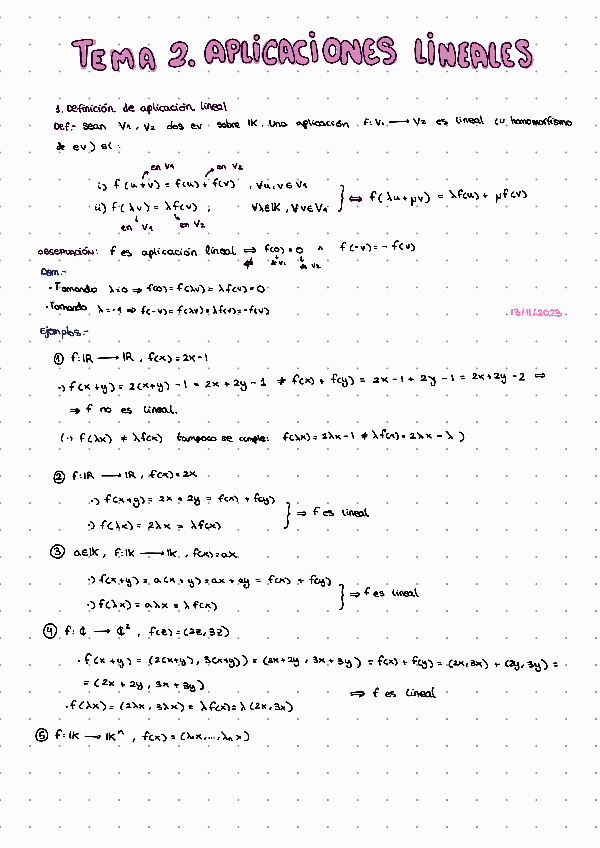 TEMA 2. APLICACIONES LINEALES
1. Definición de aplicación lineal
Def.- Sean V₁, V₂ dos ev sobre IK. Una aplicación f: V₁ ⟶ V₂ es lineal (u homomorfismo
de ev) si:
en V₁ en V₂
i) f(u+v) = f(u) + f(v) , ∀u,v∈V₁
ii) f(λv) = λf(v) ; ∀λ∈IK, ∀v∈V₁ } ⟺ f(λu+μv) = λf(u) + μf(v)
en V₁ en V₂
OBSERVACIÓN: f es aplicación lineal ⟹ f(0) = 0 ∧ f(-v) = -f(v)
de V₁ de V₂
Dem.-
·Tomando λ=0 ⟹ f(0) = f(λv) = λf(v) = 0
·Tomando λ=-1 ⟹ f(-v) = f(λv) = λf(v) = -f(v)
13/11/2023
Ejemplos.-
① f: IR ⟶ IR, f(x) = 2x-1
·) f(x+y) = 2(x+y) -1 = 2x + 2y - 1 ≠ f(x) + f(y) = 2x-1 + 2y-1 = 2x+2y-2 ⟹
⟹ f no es lineal.
(·) f(λx) ≠ λf(x) tampoco se cumple: f(λx) = 2λx-1 ≠ λf(x) = 2λx-λ )
② f: IR ⟶ IR, f(x) = 2x
·) f(x+y) = 2x + 2y = f(x) + f(y)
·) f(λx) = 2λx = λf(x) } ⟹ f es lineal
③ a∈IK, f: IK ⟶ IK, f(x) = ax
·) f(x+y) = a(x+y) = ax + ay = f(x) + f(y)
·) f(λx) = aλx = λf(x) } ⟹ f es lineal
④ f: ℂ ⟶ ℂ², f(z) = (2z, 3z)
· f(x+y) = (2(x+y), 3(x+y)) = (2x+2y, 3x+3y) = f(x) + f(y) = (2x,3x) + (2y,3y) =
= (2x + 2y, 3x + 3y)
⟹ f es lineal
· f(λx) = (2λx, 3λx) = λf(x) = λ(2x,3x)
⑤ f: IK ⟶ IKⁿ, f(x) = (λ₁x,...,λₙx)